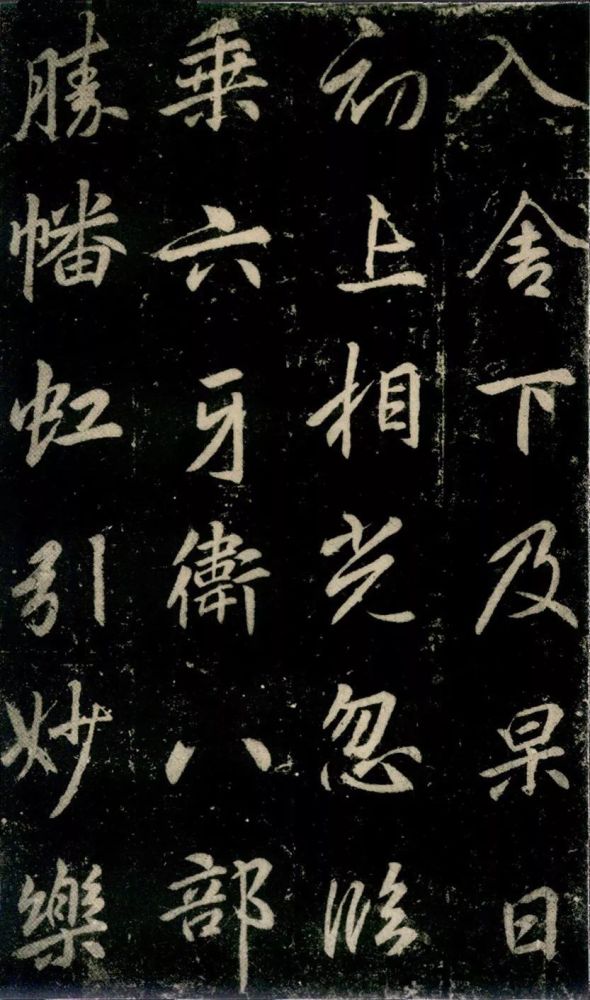 入舍下及杲日
初上相光忽臨
乘六牙衛八部
勝幡虹引妙樂